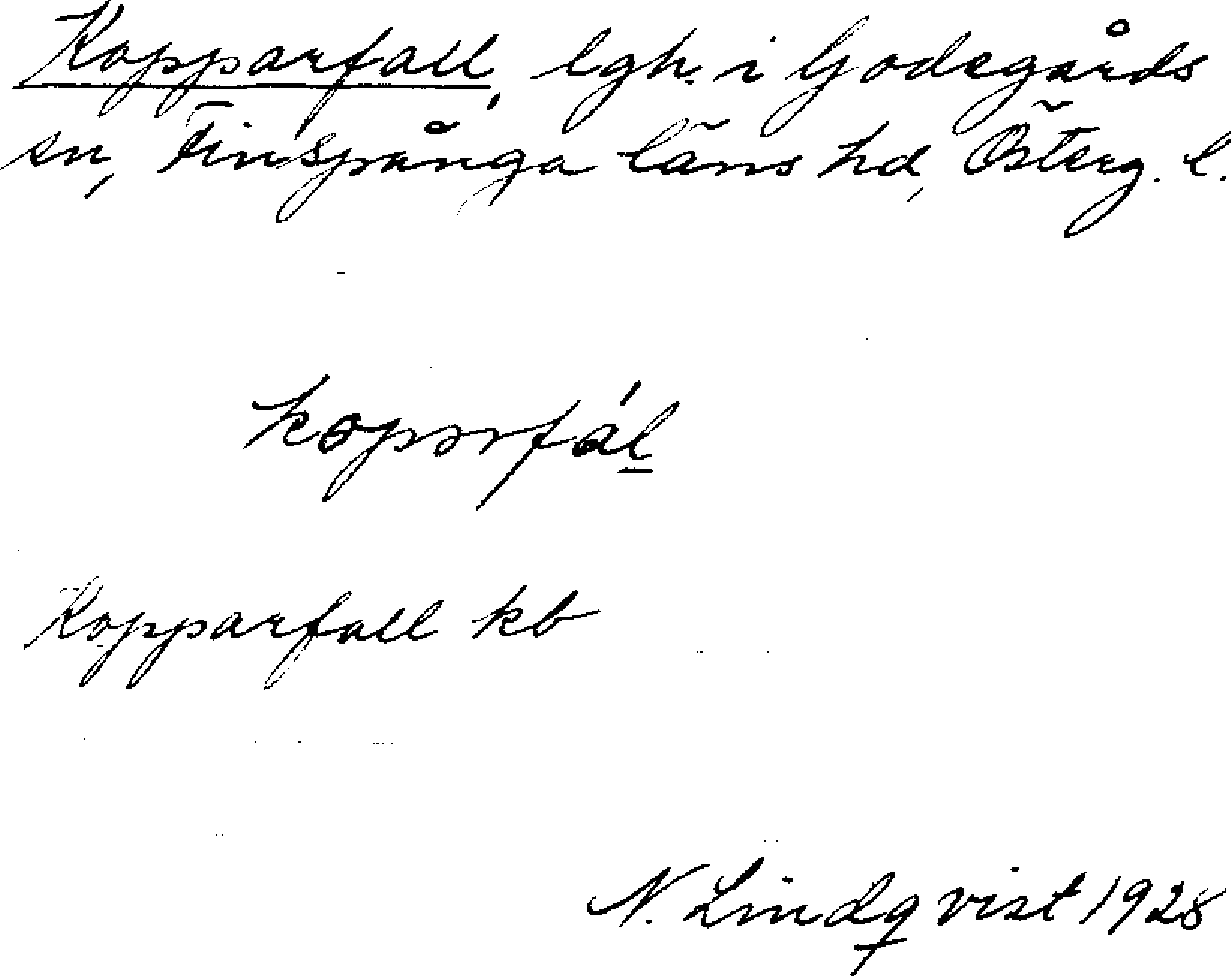 Kopparfall, lgh. i Godegårds
sn, Finspånga läns hd, Österg. l.
kopərfál
Kopparfall kb
N. Lindqvist 1928